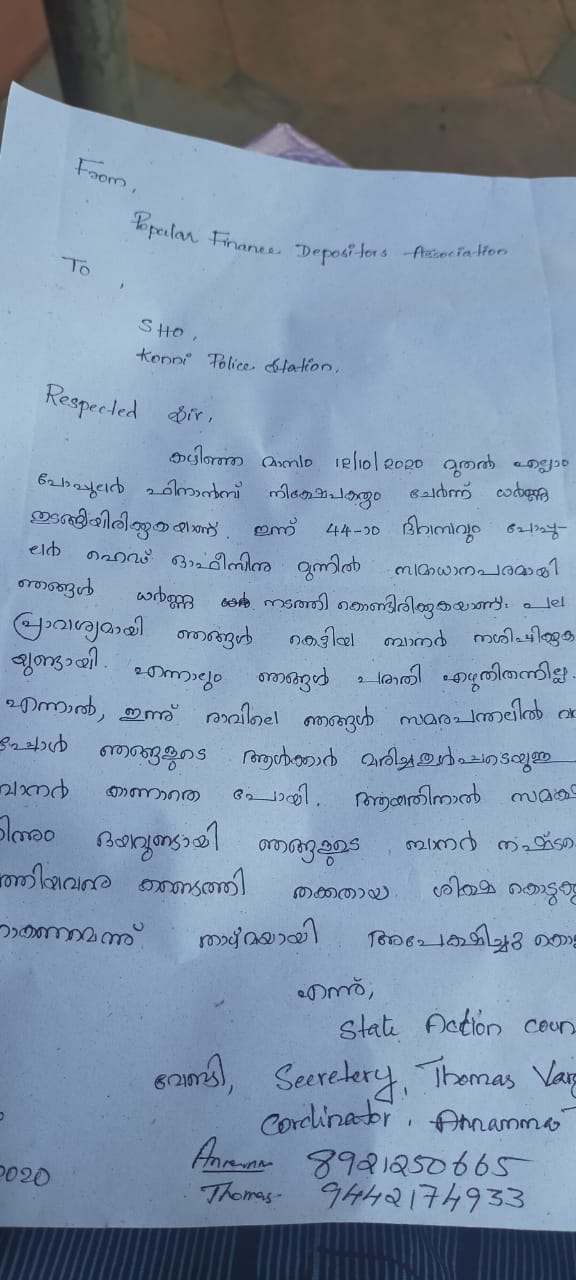 From,
Popular Finance Depositors Association
To,
SHO,
Konni Police Station.
Respected Sir,
കഴിഞ്ഞ മാസം 12/10/2020 മുതൽ എല്ലാം
പോപ്പുലർ ഫിനാൻസ് നിക്ഷേപകരും ചേർന്ന് ധർണ്ണ
തുടങ്ങിയിരിക്കുകയാണ്. ഇന്ന് 44-ാം ദിവസവും പോപ്പു-
ലർ ഹെഡ് ഓഫീസിനു മുന്നിൽ സമാധാനപരമായി
ഞങ്ങൾ ധർണ്ണ നടത്തി കൊണ്ടിരിക്കുകയാണ്. പല
പ്രാവശ്യമായി ഞങ്ങൾ കെട്ടിയ ബാനർ നശിപ്പിക്കുക
യുണ്ടായി. എന്നാലും ഞങ്ങൾ പരാതി എഴുതിതന്നില്ല.
എന്നാൽ, ഇന്ന് രാവിലെ ഞങ്ങൾ സമരപന്തലിൽ വ
പ്പോൾ ഞങ്ങളുടെ ആൾക്കാർ മരിച്ചതുൾപ്പടെയുള്ള
ബാനർ കാണാതെ പോയി. ആയതിനാൽ
ദയവുണ്ടായി ഞങ്ങളുടെ ബാനർ
കണ്ടെത്തി തക്കതായ ശിക്ഷ
താഴ്മയായി അപേക്ഷിച്ചു കൊ
എന്ന്,
State Action coun
വേണ്ടി, Secretery, Thomas Var
Cordinator, Annamma T
Annamma 8921250665
2020
Thomas- 9442174933